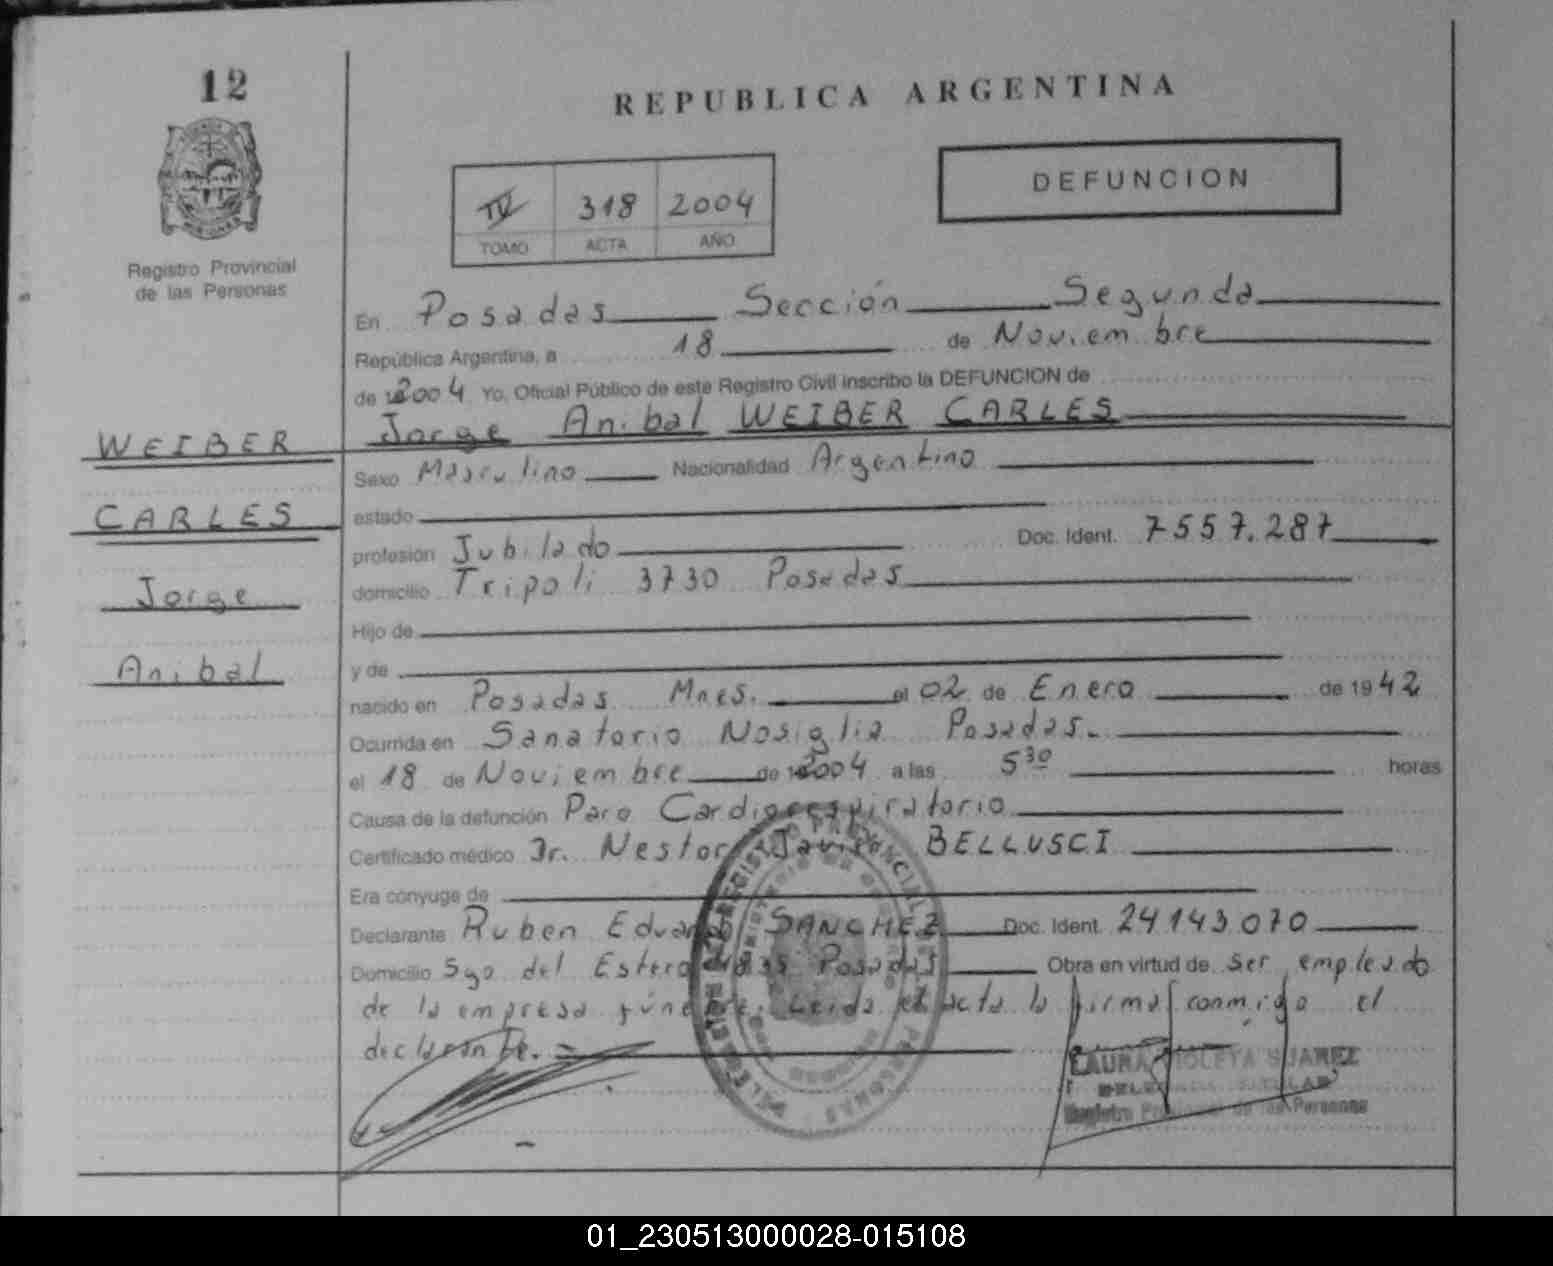 12
REPUBLICA ARGENTINA
DEFUNCION
IV 318 2004
TOMO ACTA AÑO
Registro Provincial
de las Personas
En Posadas Sección Segunda
República Argentina, a 18 de Noviembre
de 2004 Yo, Oficial Público de este Registro Civil inscribo la DEFUNCION de
Jorge Anibal WEIBER CARLES
WEIBER
CARLES
Jorge
Anibal
Sexo Masculino Nacionalidad Argentino
estado
profesión Jubilado Doc. Ident. 7557.287
domicilio Tripoli 3730 Posadas
Hijo de
y de
nacido en Posadas Mnes. el 02 de Enero de 1942
Ocurrida en Sanatorio Nosiglia Posadas.
el 18 de Noviembre de 2004 a las 5 30 horas
Causa de la defunción Paro Cardiorespiratorio
Certificado médico Dr. Nestor Javier BELLUSCI
Era cónyuge de
Declarante Ruben Eduardo SANCHEZ Doc. Ident. 24143070
Domicilio Sgo del Estero Posadas Obra en virtud de ser empleado
de la empresa fúnebre. Leida el acta la firma conmigo el
declarante.
REGISTRO PROVINCIAL DE LAS PERSONAS
LAURA VIOLETA SUAREZ
DELEGADA TITULAR
Registro Provincial de las Personas
01_230513000028-015108